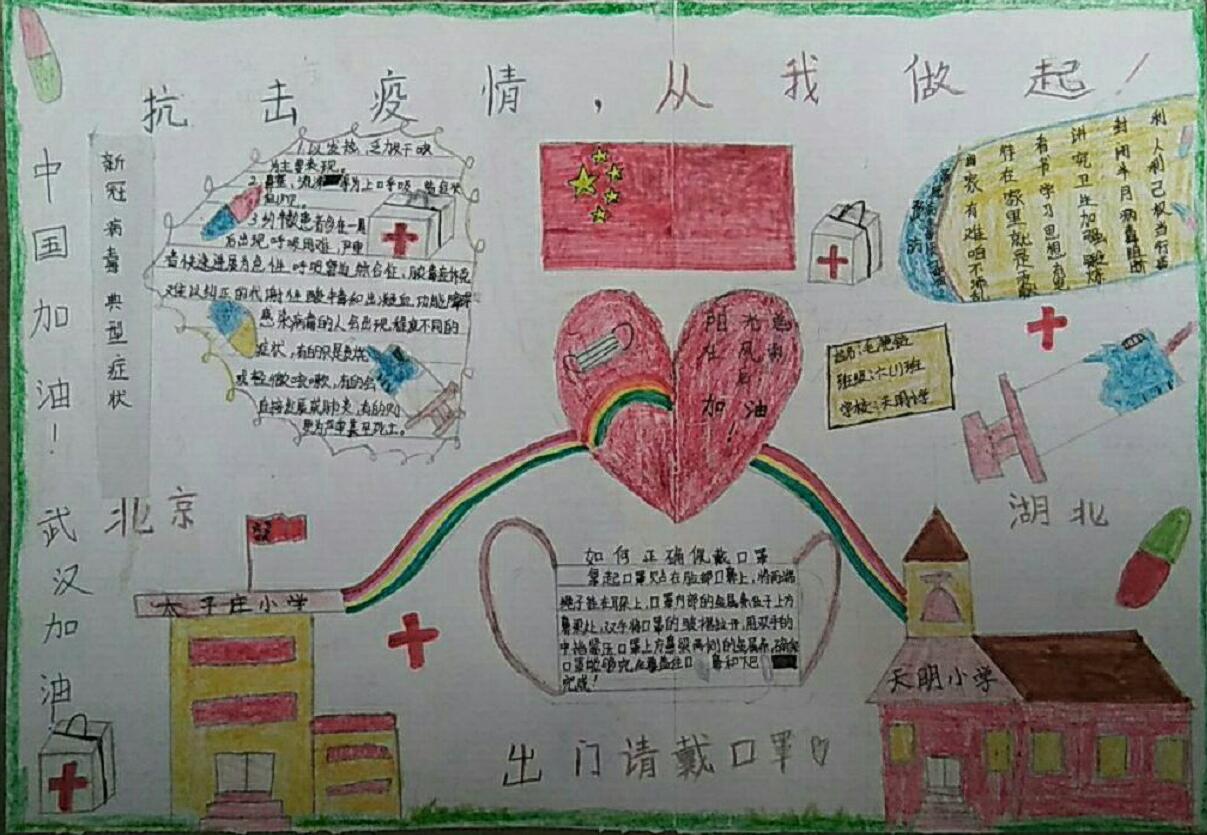 抗击疫情，从我做起！
中国加油！
武汉加油！
新冠病毒典型症状
1.以发热，乏力干咳
为主要表现。
2.鼻塞，流涕等为上呼吸
3.约半数患者多在一周
后出现呼吸困难，严重
者快速进展为急性呼吸窘迫综合征，脓毒症休克
难以纠正的代谢性酸中毒和出凝血功能障碍
感染病毒的人会出现程度不同的
症状，有的只是发烧
或轻微咳嗽，有的会
直接发展成肺炎，有的则
更为严重甚至死亡。
利人利己权当行善
封闭半月病毒阻断
讲究卫生加强锻炼
看书学习思想有
待在家里就是贡献
国家有难咱不添乱
阳光总
在风雨
后
加油！
班级：六(1)班
学校：天明小学
北京
湖北
太子庄小学
天明小学
如何正确佩戴口罩
拿起口罩贴在脸部口鼻上，将两端
绳子挂在耳朵上，口罩内部的金属条位于上方
鼻梁处，双手将口罩的皱褶拉开，用双手的
中指紧压口罩上方鼻梁两侧的金属条，确保
口罩能够完全覆盖住口鼻和下巴
完成！
出门请戴口罩♡